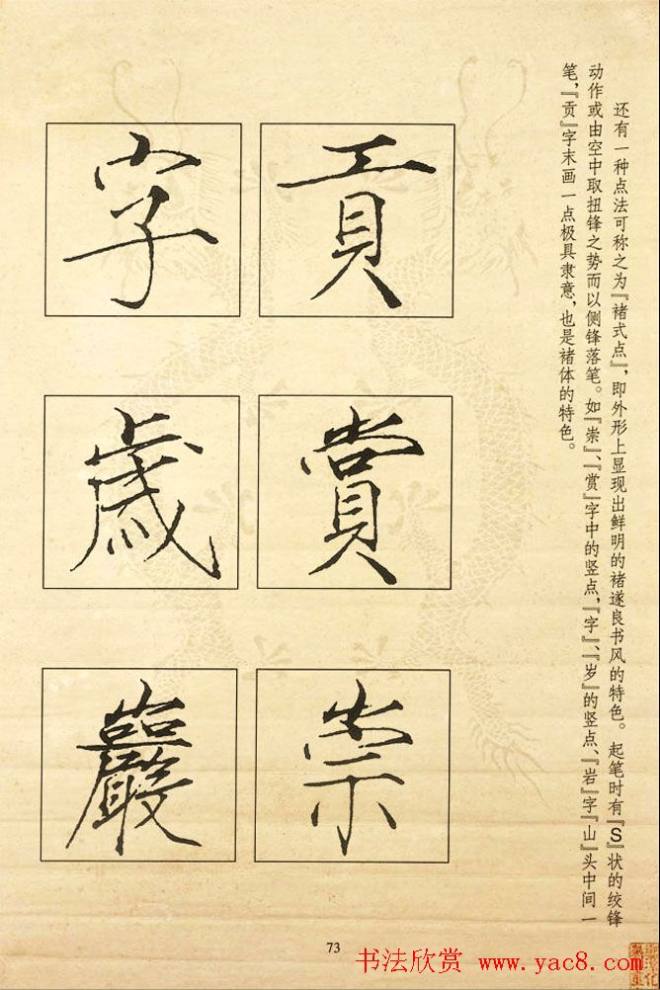 还有一种点法可称之为『褚式点』，即外形上显现出鲜明的褚遂良书风的特色。起笔时有『S』状的绞锋
动作或由空中取扭锋之势而以侧锋落笔。如『崇』、『赏』字中的竖点，『字』、『岁』的竖点、『岩』字『山』头中间一
笔，『贡』字末画一点极具隶意，也是褚体的特色。
貢
賞
崇
字
歲
巖
73
书法欣赏 www.yac8.com